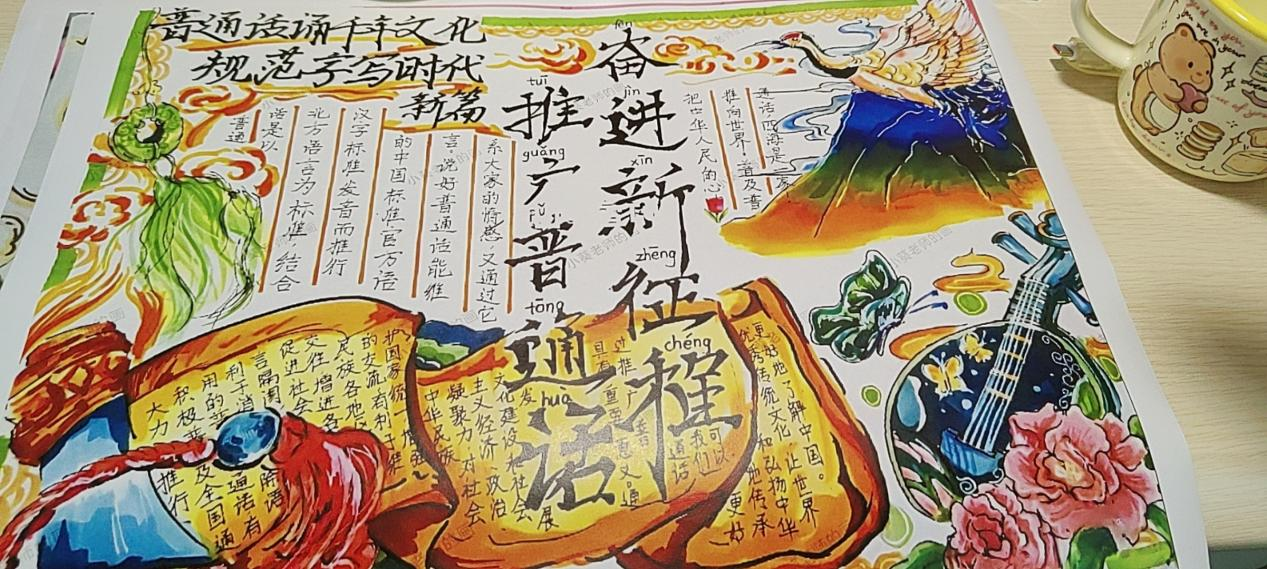 普通话诵千年文化
规范字写时代
新篇
fèn
奋
jìn
进
xīn
新
zhēng
征
chéng
程
tuī
推
guǎng
广
pǔ
普
tōng
通
huà
话
普通
话是以
北方语言为标准 结合
汉字标准发音而推行
的中国标准官方语
言,说好普通话能维
系大家的情感,又通过它
把中华人民的心
推向世界,普及普
通话四海是一家
护国家统一,增进
的交流,有利于
民族各地
交往,增进各
促进社会
言隔阂
利于消
用的
积极普及全国通
大力推行
更好地了解中国。
优秀传统文化
让世界
和弘扬中华
地传承
更好
我们可以
通话
过推广普
具有重要意义。通
文化建设和社会
主义经济、政治
凝聚力,对社会
中华民族
发展
小葵老师的画